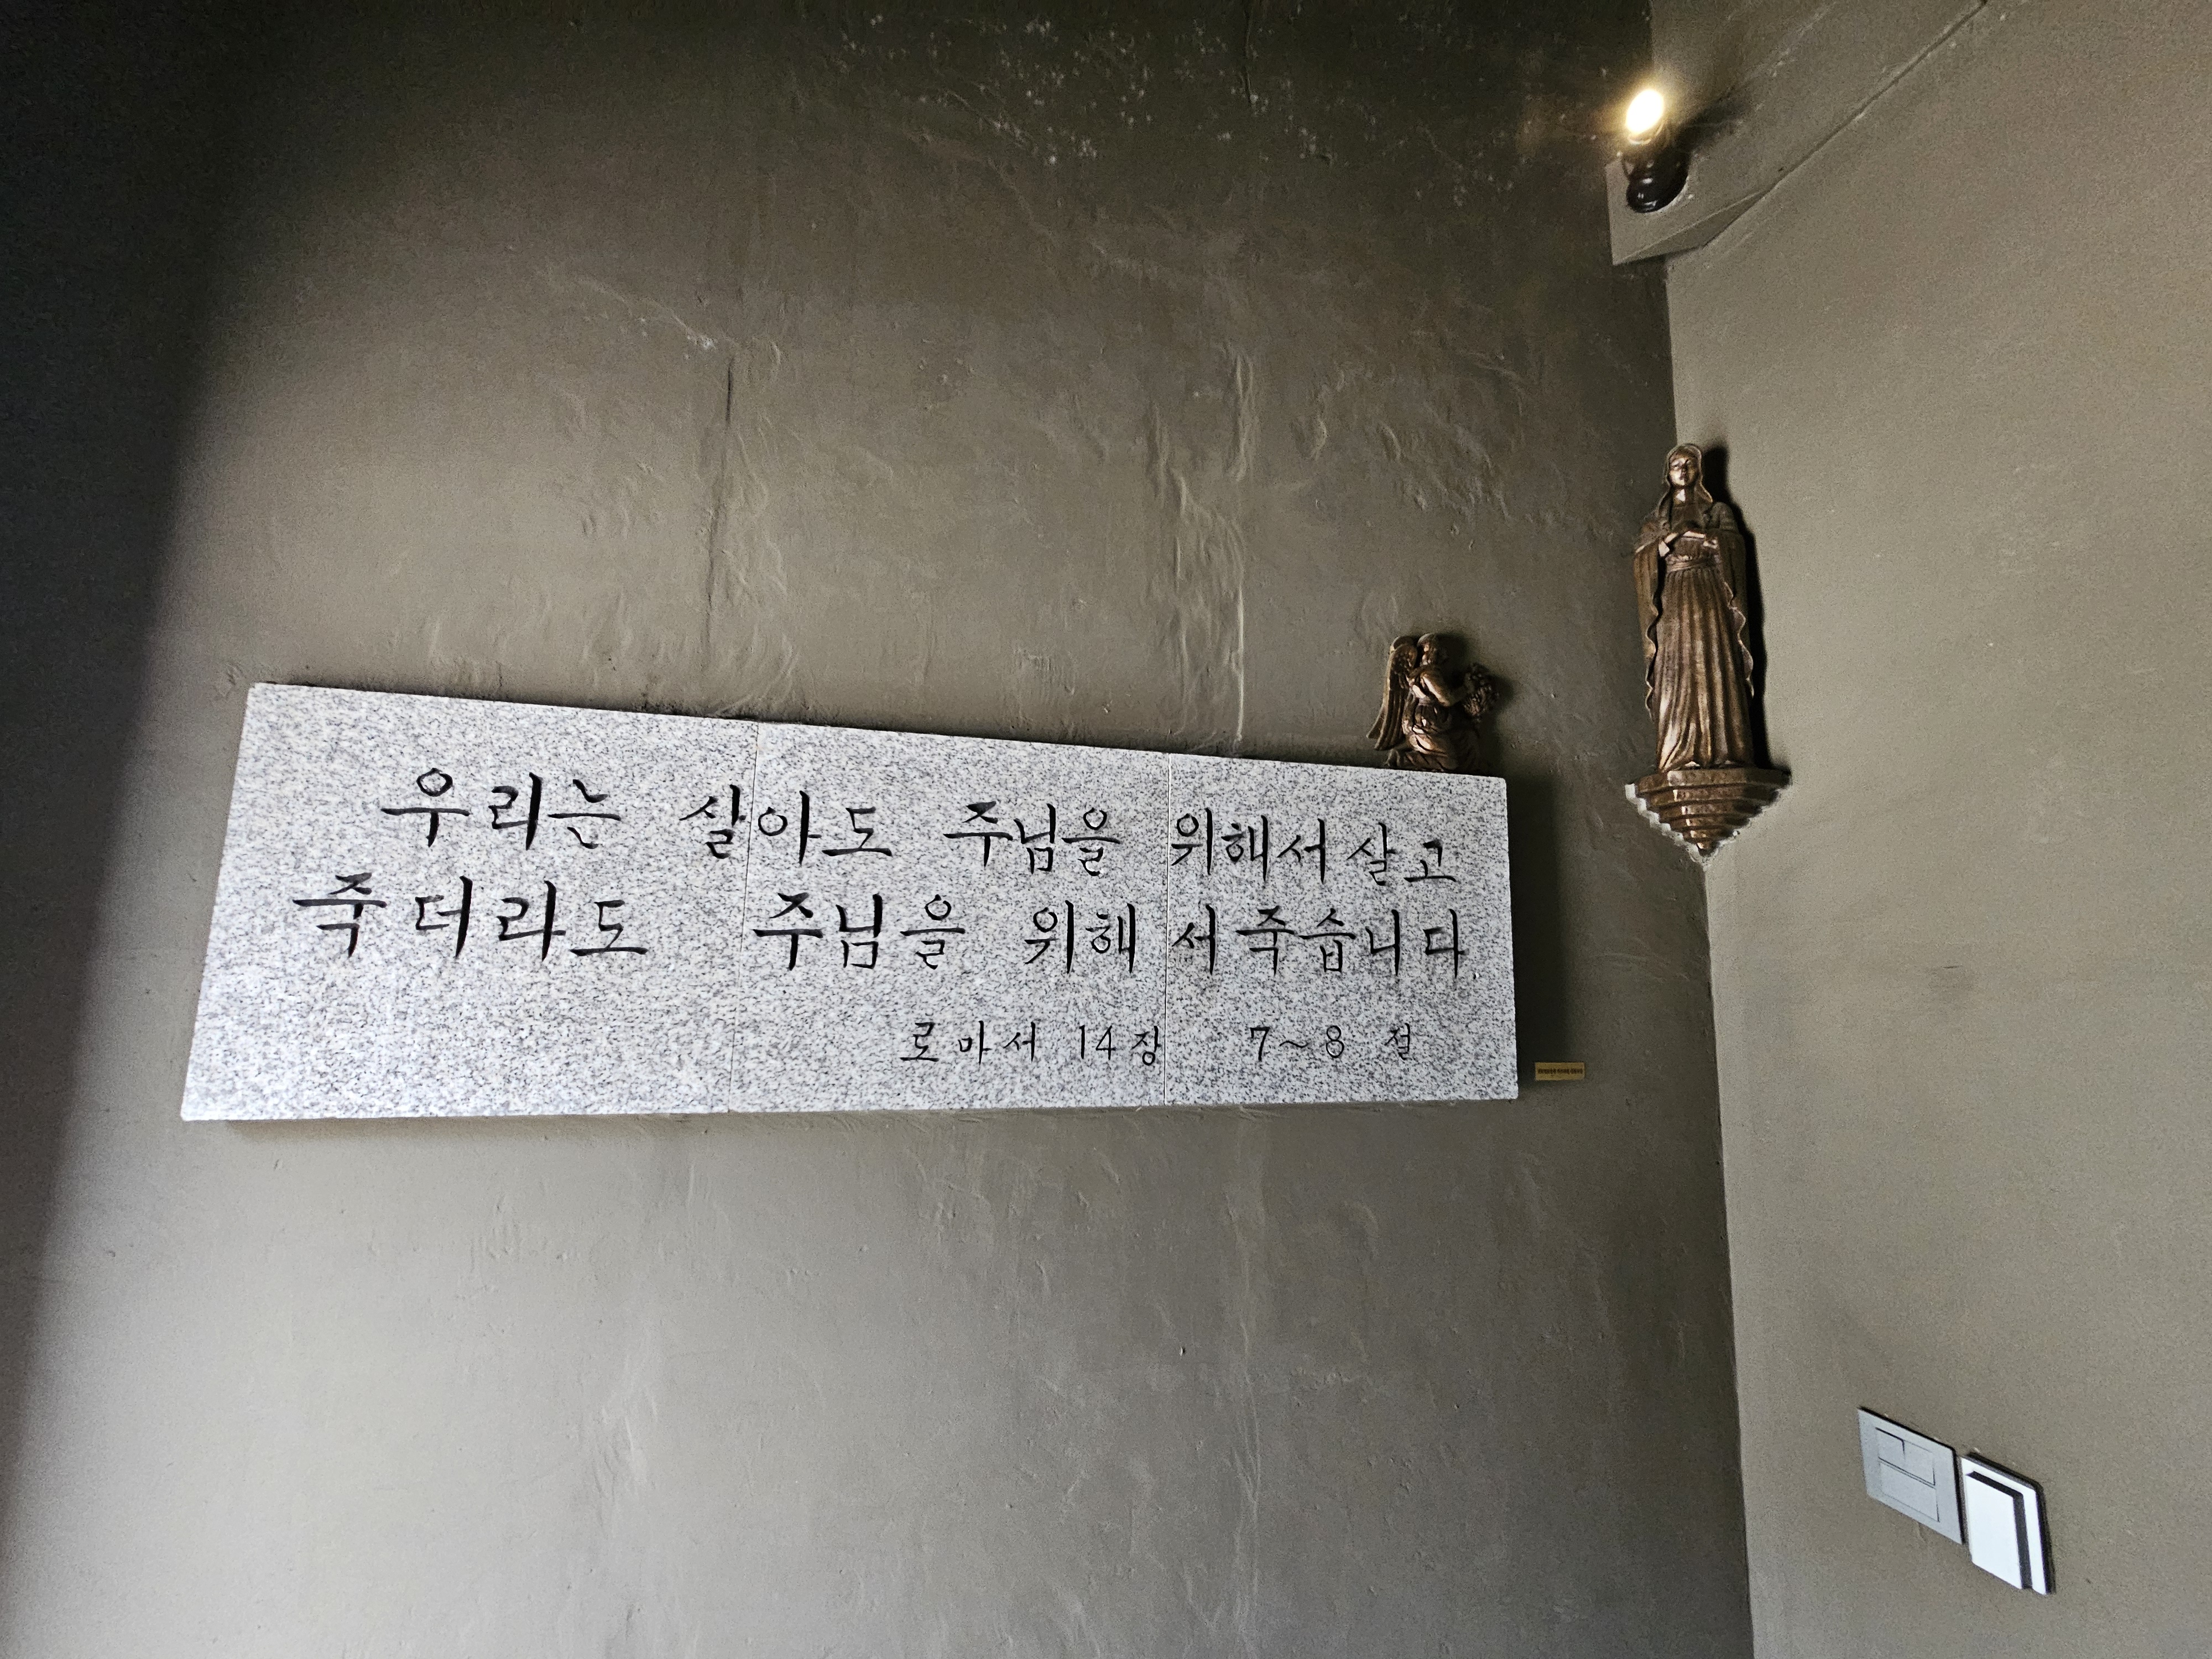 우리는 살아도 주님을 위해서 살고
죽더라도 주님을 위해서 죽습니다
로마서 14장 7~8 절